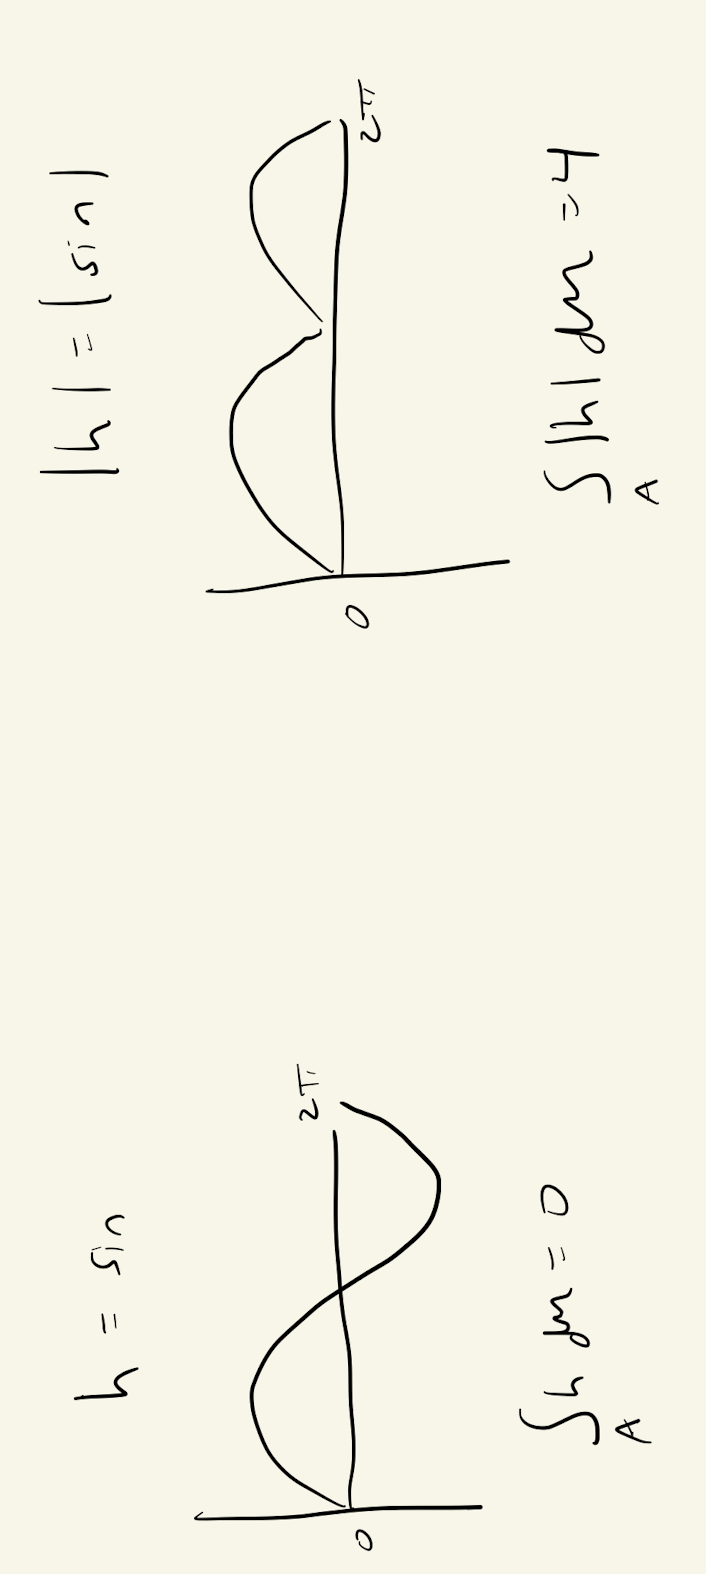 h = sin
2π
0
∫_A h dm = 0
|h| = |sin|
0
2π
∫_A |h| dm = 4